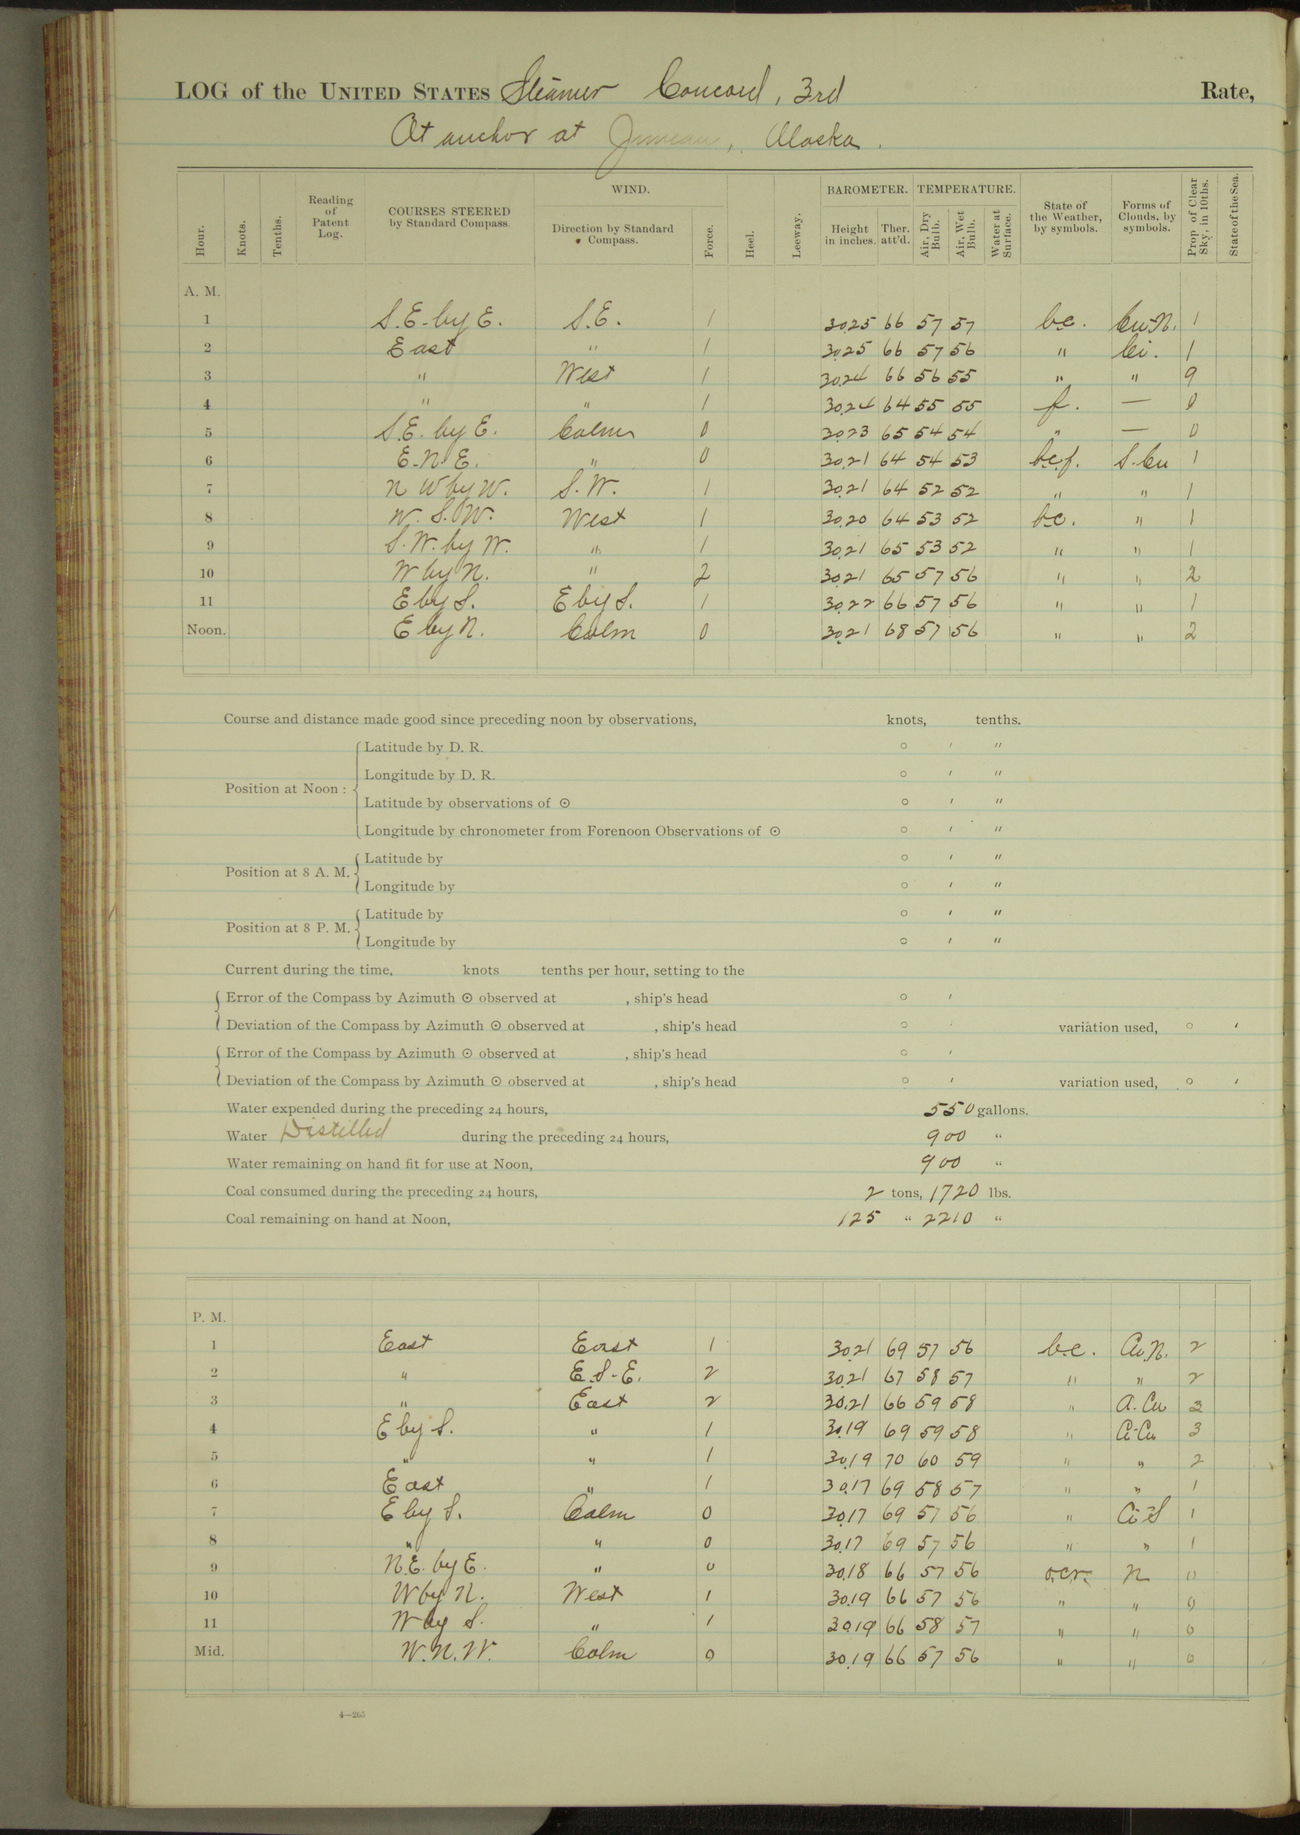 LOG of the UNITED STATES Steamer Concord, 3rd Rate,
At anchor at Juneau, Alaska.
Hour. Knots. Tenths. Reading of Patent Log. COURSES STEERED by Standard Compass. WIND. Direction by Standard Compass. Force. Heel. Leeway. BAROMETER. Height in inches. Ther. att'd. TEMPERATURE. Air, Dry Bulb. Air, Wet Bulb. Water at Surface. State of the Weather, by symbols. Forms of Clouds, by symbols. Prop of Clear Sky, in 10ths. State of the Sea.
A. M.
1 S.E. by E. S.E. 1 30.25 66 57 57 b.c. Cu-N. 1
2 East " 1 30.25 66 57 56 " Ci. 1
3 " West 1 30.24 66 56 55 " " 9
4 " " 1 30.24 64 55 55 f. — 0
5 S.E. by E. Calm 0 30.23 65 54 54 " — 0
6 E.N.E. " 0 30.21 64 54 53 b.c.f. S.Cu 1
7 N W by W. S.W. 1 30.21 64 52 52 " " 1
8 W.S.W. West 1 30.20 64 53 52 b.c. " 1
9 S.W. by W. " 1 30.21 65 53 52 " " 1
10 W by N. " 2 30.21 65 57 56 " " 2
11 E by S. E by S. 1 30.22 66 57 56 " " 1
Noon. E by N. Calm 0 30.21 68 57 56 " " 2
Course and distance made good since preceding noon by observations, knots, tenths.
Position at Noon: Latitude by D. R. ○ ′ ″
Longitude by D. R. ○ ′ ″
Latitude by observations of ☉ ○ ′ ″
Longitude by chronometer from Forenoon Observations of ☉ ○ ′ ″
Position at 8 A. M. Latitude by ○ ′ ″
Longitude by ○ ′ ″
Position at 8 P. M. Latitude by ○ ′ ″
Longitude by ○ ′ ″
Current during the time, knots tenths per hour, setting to the
Error of the Compass by Azimuth ☉ observed at , ship's head ○ ′
Deviation of the Compass by Azimuth ☉ observed at , ship's head ○ ′ variation used, ○ ′
Error of the Compass by Azimuth ☉ observed at , ship's head ○ ′
Deviation of the Compass by Azimuth ☉ observed at , ship's head ○ ′ variation used, ○ ′
Water expended during the preceding 24 hours, 550 gallons.
Water Distilled during the preceding 24 hours, 900 "
Water remaining on hand fit for use at Noon, 900 "
Coal consumed during the preceding 24 hours, 2 tons, 1720 lbs.
Coal remaining on hand at Noon, 125 " 2210 "
P. M.
1 East East 1 30.21 69 57 56 b.c. Cu.N. 2
2 " E.S.E. 2 30.21 67 58 57 " " 2
3 " East 2 30.21 66 59 58 " A.Cu 3
4 E by S. " 1 30.19 69 59 58 " Ci-Cu 3
5 " " 1 30.19 70 60 59 " " 2
6 East " 1 30.17 69 58 57 " " 1
7 E by S. Calm 0 30.17 69 57 56 " Ci-S 1
8 " " 0 30.17 69 57 56 " " 1
9 N.E. by E. " 0 30.18 66 57 56 o.c.r. N 0
10 W by N. West 1 30.19 66 57 56 " " 0
11 W by S. " 1 30.19 66 58 57 " " 0
Mid. W.N.W. Calm 0 30.19 66 57 56 " " 0
4—265